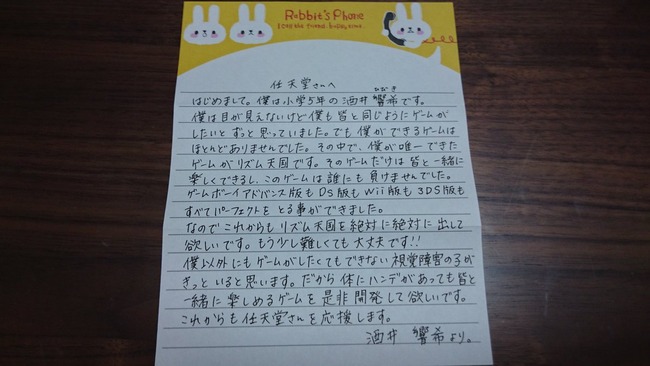 Rabbit's Phone
任天堂さんへ
はじめまして。僕は小学5年の酒井響希です。
ひびき
僕は目が見えないけど僕も皆と同じようにゲームが
したいとずっと思っていました。でも僕ができるゲームは
ほとんどありませんでした。その中で、僕が唯一できた
ゲームがリズム天国です。そのゲームだけは皆と一緒に
楽しくできるし、このゲームは誰にも負けませんでした。
ゲームボーイアドバンス版もDS版もWii版も3DS版も
すべてパーフェクトをとる事ができました。
なのでこれからもリズム天国を絶対に絶対に出して
欲しいです。もう少し難しくても大丈夫です!!
僕以外にもゲームがしたくてもできない視覚障害の子が
きっといると思います。だから体にハンデがあっても皆と
一緒に楽しめるゲームを是非開発して欲しいです。
これからも任天堂さんを応援します。
酒井 響希より。